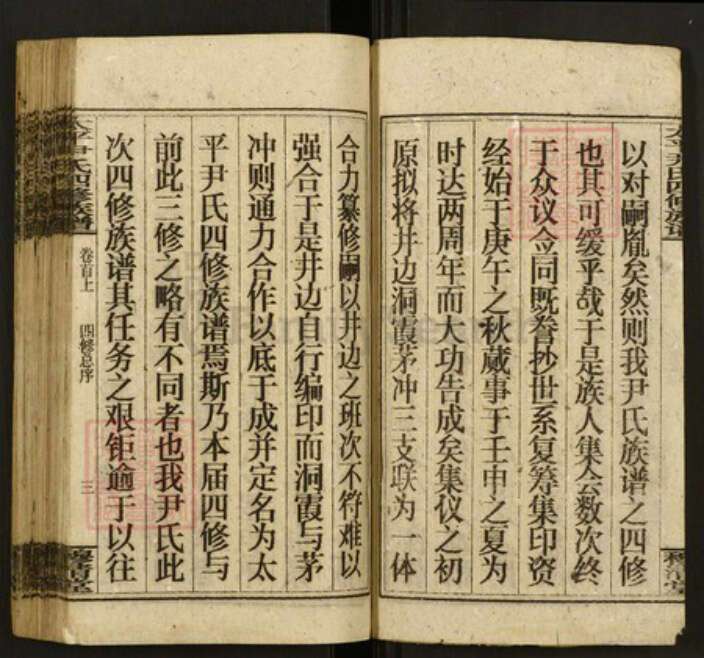 太平尹氏四修族谱
以对嗣胤矣然则我尹氏族谱之四修
也其可缓乎哉于是族人集会数次终
于众议佥同既誊抄世系复筹集印资
经始于庚午之秋蒇事于壬申之夏为
时达两周年而大功告成矣集仪之初
原拟将井边洞霞茅冲三支联为一体
合力纂修嗣以井边之班次不符难以
强合于是井边自行编印而洞霞与茅
冲则通力合作以底于成并定名为太
平尹氏四修族谱焉斯乃本届四修与
前此三修之略有不同者也我尹氏此
次四修族谱其任务之艰钜逾于以往
太平尹氏四修族谱
卷首上
四修总序
三